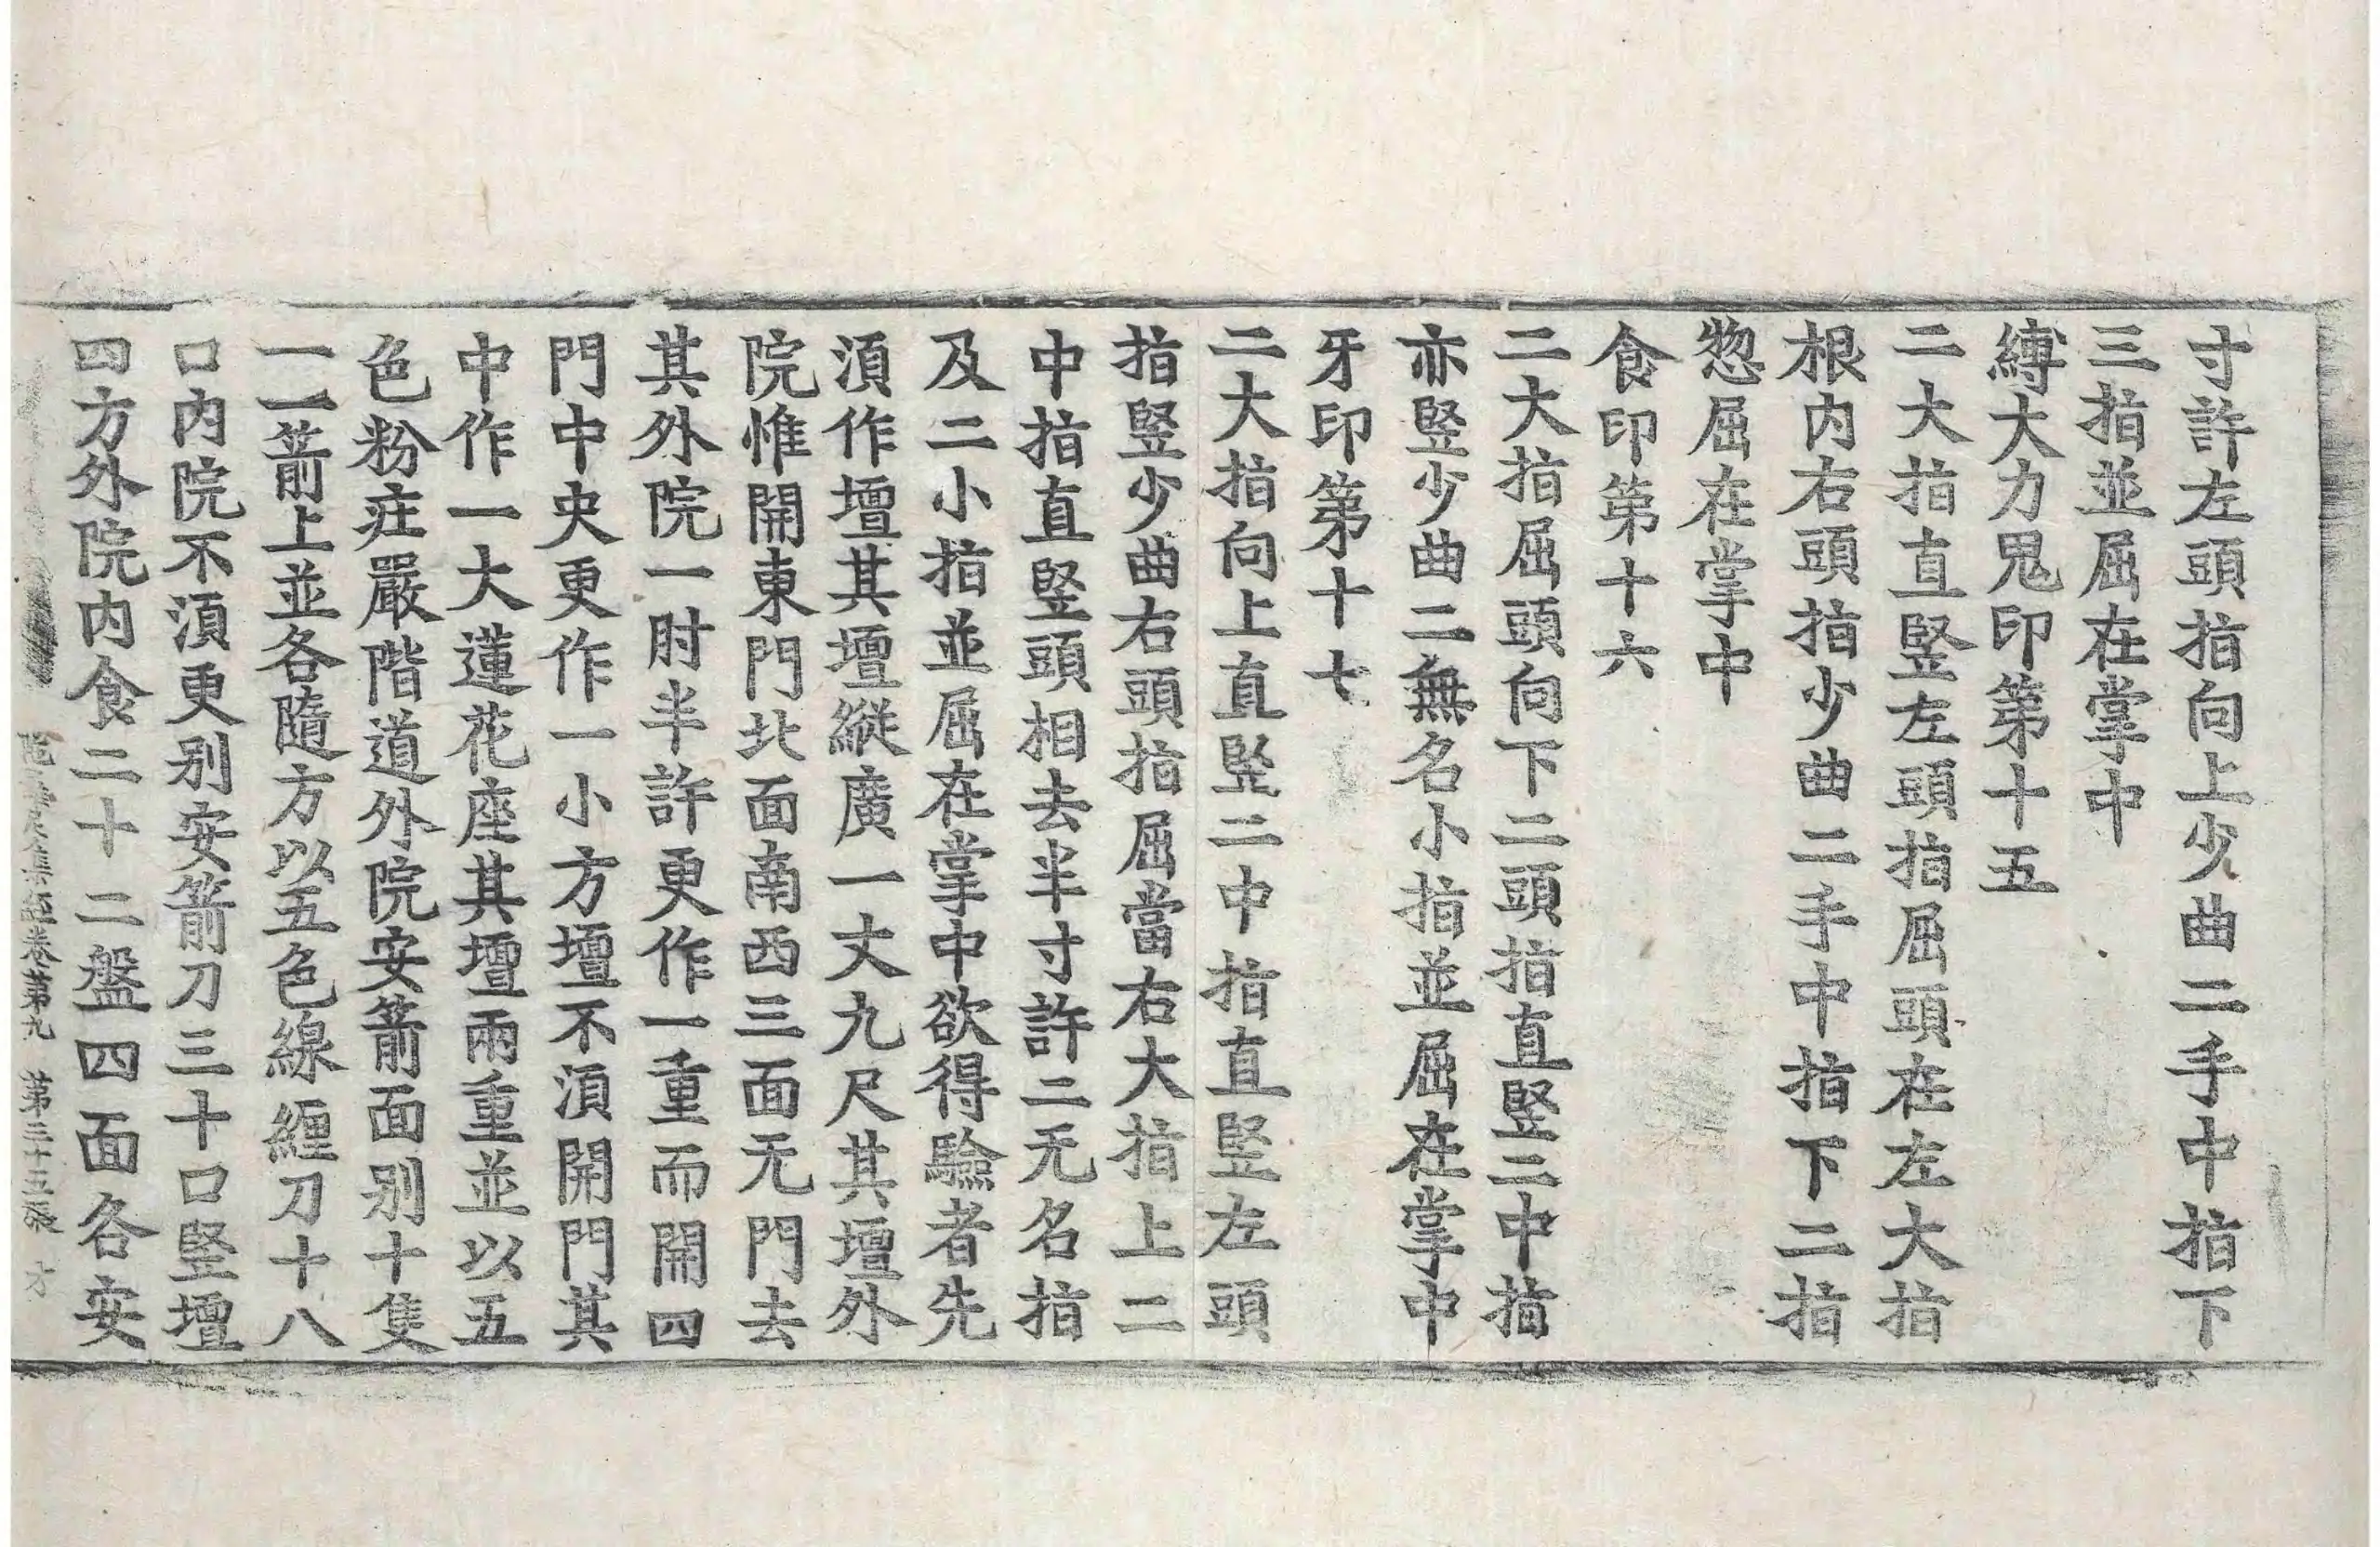 寸許左頭指向上少曲二手中指下
三指並屈在掌中
縛大力鬼印第十五
二大指直竪左頭指屈頭在左大指
根内右頭指少曲二手中指下二指
惣屈在掌中
食印第十六
二大指屈頭向下二頭指直竪二中指
亦竪少曲二無名小指並屈在掌中
牙印第十七
二大指向上直竪二中指直竪左頭
指竪少曲右頭指屈當右大指上二
中指直竪頭相去半寸許二无名指
及二小指並屈在掌中欲得驗者先
湏作壇其壇縱廣一丈九尺其壇外
院惟開東門北面南西三面无門去
其外院一肘半許更作一重而開四
門中央更作一小方壇不湏開門其
中作一大蓮花座其壇兩重並以五
色粉莊嚴階道外院安箭面别十隻
一一箭上並各隨方以五色線纒刀十八
口内院不湏更别安箭刀三十口竪壇
四方外院内食二十二盤四面各安
陁羅尼集經卷第九 第三十五張